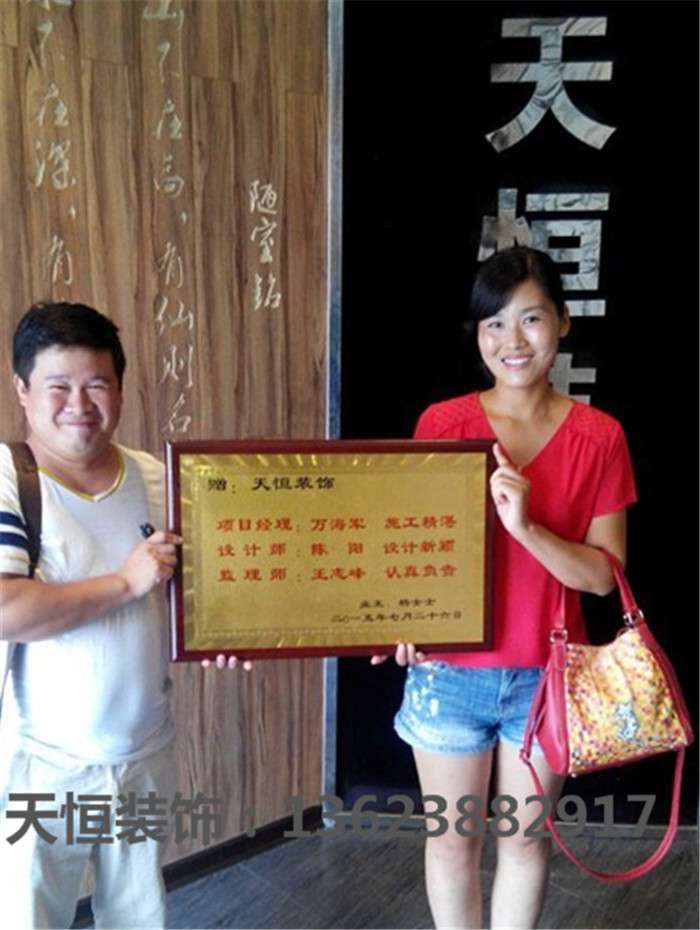 山不在高，有仙则名
水不在深，有
陋室铭
天恒装
赠：天恒装饰
项目经理：万海军 施工精湛
设计师：陈阳 设计新颖
监理师：王志峰 认真负责
业主：杨女士
二〇一五年七月二十六日
天恒装饰：13623882917